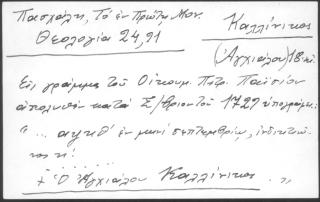 Πασχάλη, Τό ἐν Πρώτῃ Μον.
Θεολογία 24, 91
Καλλίνικος
(Ἀγχιάλου) 18
Εἰς γράμμα τοῦ Οἰκουμ. Πατρ. Παϊσίου
ἀπολυθέν κατά Σ/βριον τοῦ 1729 ὑπογράφει:
"... αψκθ' ἐν μηνί σεπτεμβρίῳ, ἰνδικτιῶ-
νος η':
+ Ὁ Ἀγχιάλου Καλλίνικος. "